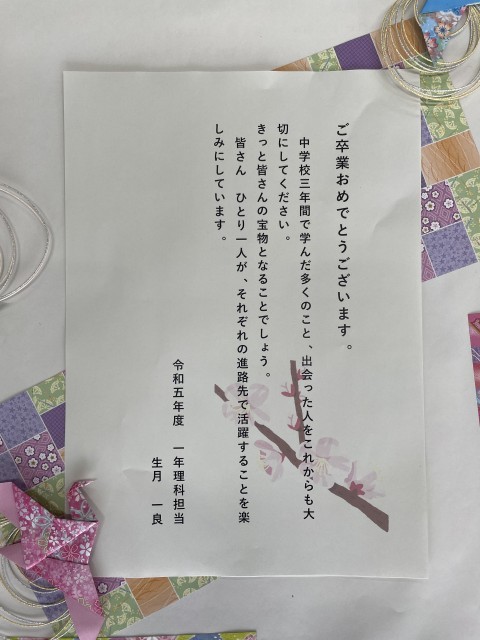 ご卒業おめでとうございます。
中学校三年間で学んだ多くのこと、出会った人をこれからも大
切にしてください。
きっと皆さんの宝物となることでしょう。
皆さん　ひとり一人が、それぞれの進路先で活躍することを楽
しみにしています。
令和五年度　一年理科担当
生月　一良